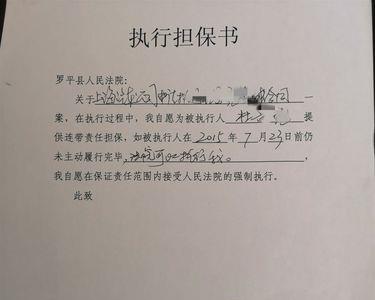 执行担保书
罗平县人民法院：
关于上海 公司 合同一
案，在执行过程中，我自愿为被执行人杜 提
供连带责任担保，如被执行人在2015年7月23日前仍
未主动履行完毕，法院可以执行我。
我自愿在保证责任范围内接受人民法院的强制执行。
此致